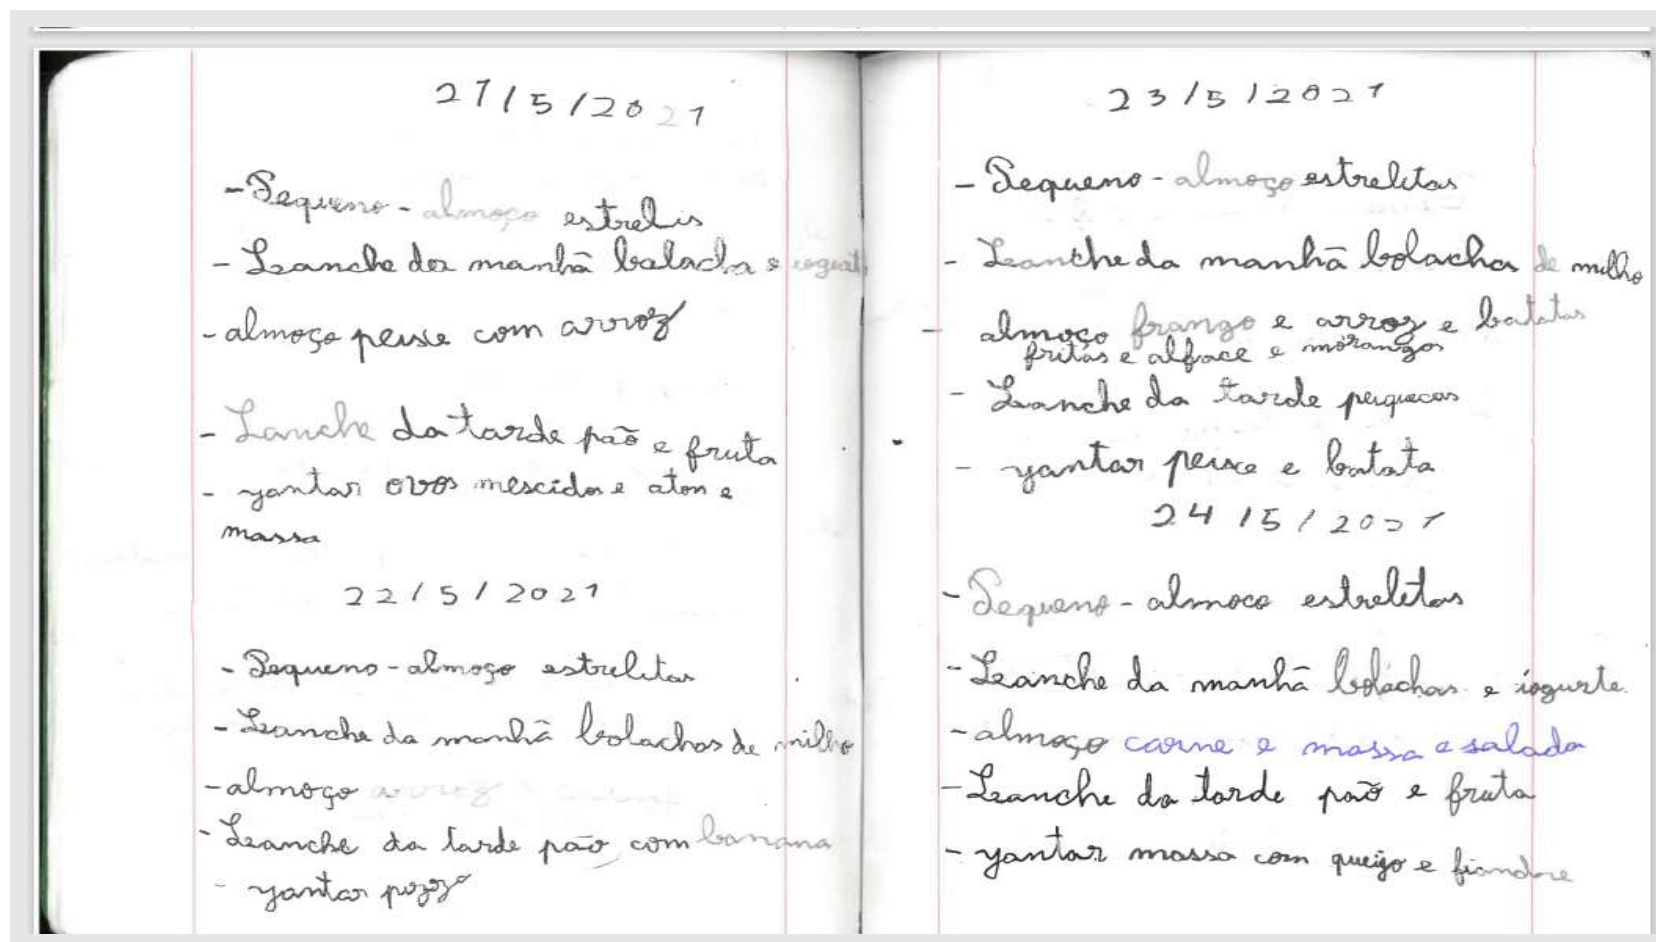 21/5/2021
- Pequeno - almoço estrelis
- Lanche da manhã balacha e iogurt
- almoço peixe com arroz
- Lanche da tarde pão e fruta
- yantar ovos mescidos e aton e
massa
22/5/2021
- Pequeno - almoço estrelitas
- Lanche da manhã bolachas de milho
- almoço arroz
- Lanche da tarde pão com banana
- yantar pizza
23/5/2021
- Pequeno - almoço estrelitas
- Lanche da manhã bolachas de milho
- almoço frango e arroz e batatas
fritas e alface e morangos
- Lanche da tarde
- yantar peixe e batata
24/5/2021
- Pequeno - almoco estrelitas
- Lanche da manhã bolachas e iogurte
- almoço carne e massa e salada
- Lanche da tarde pão e fruta
- yantar massa com queijo e